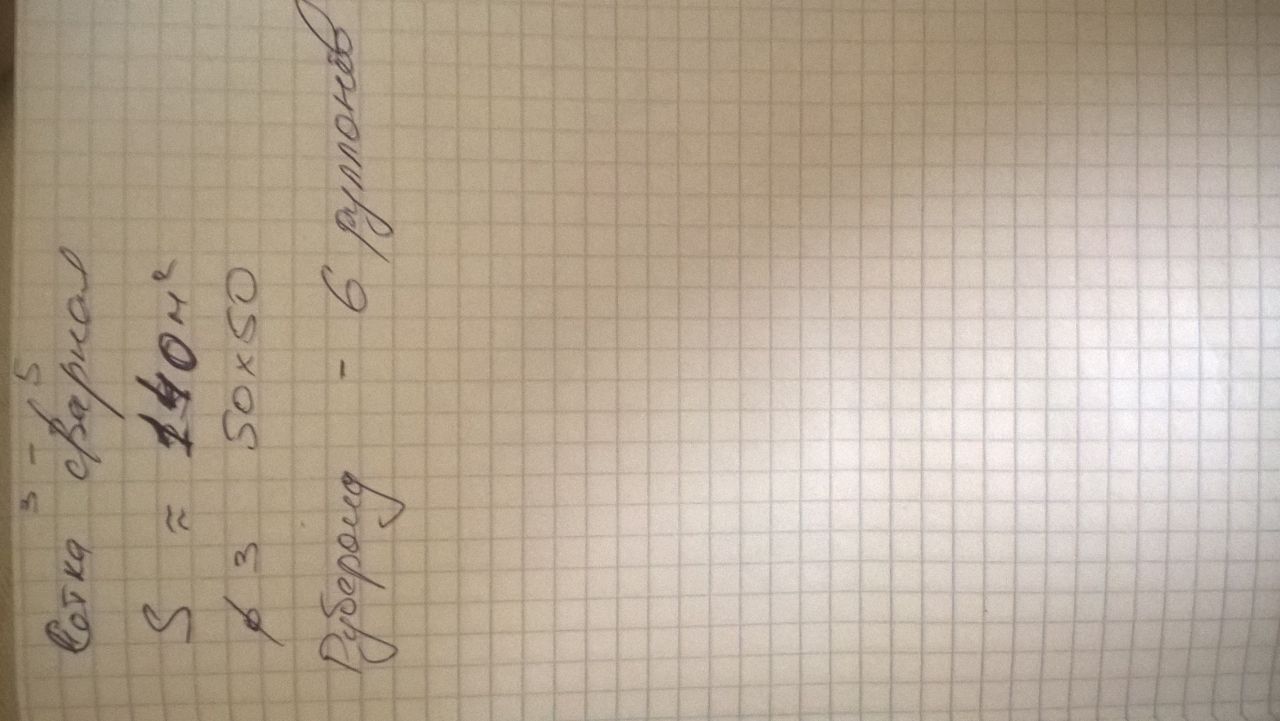 3 - 5
Сетка сварная
S ≈ 140 м²
ϕ 3 50x50
Рубероид - 6 руллонов